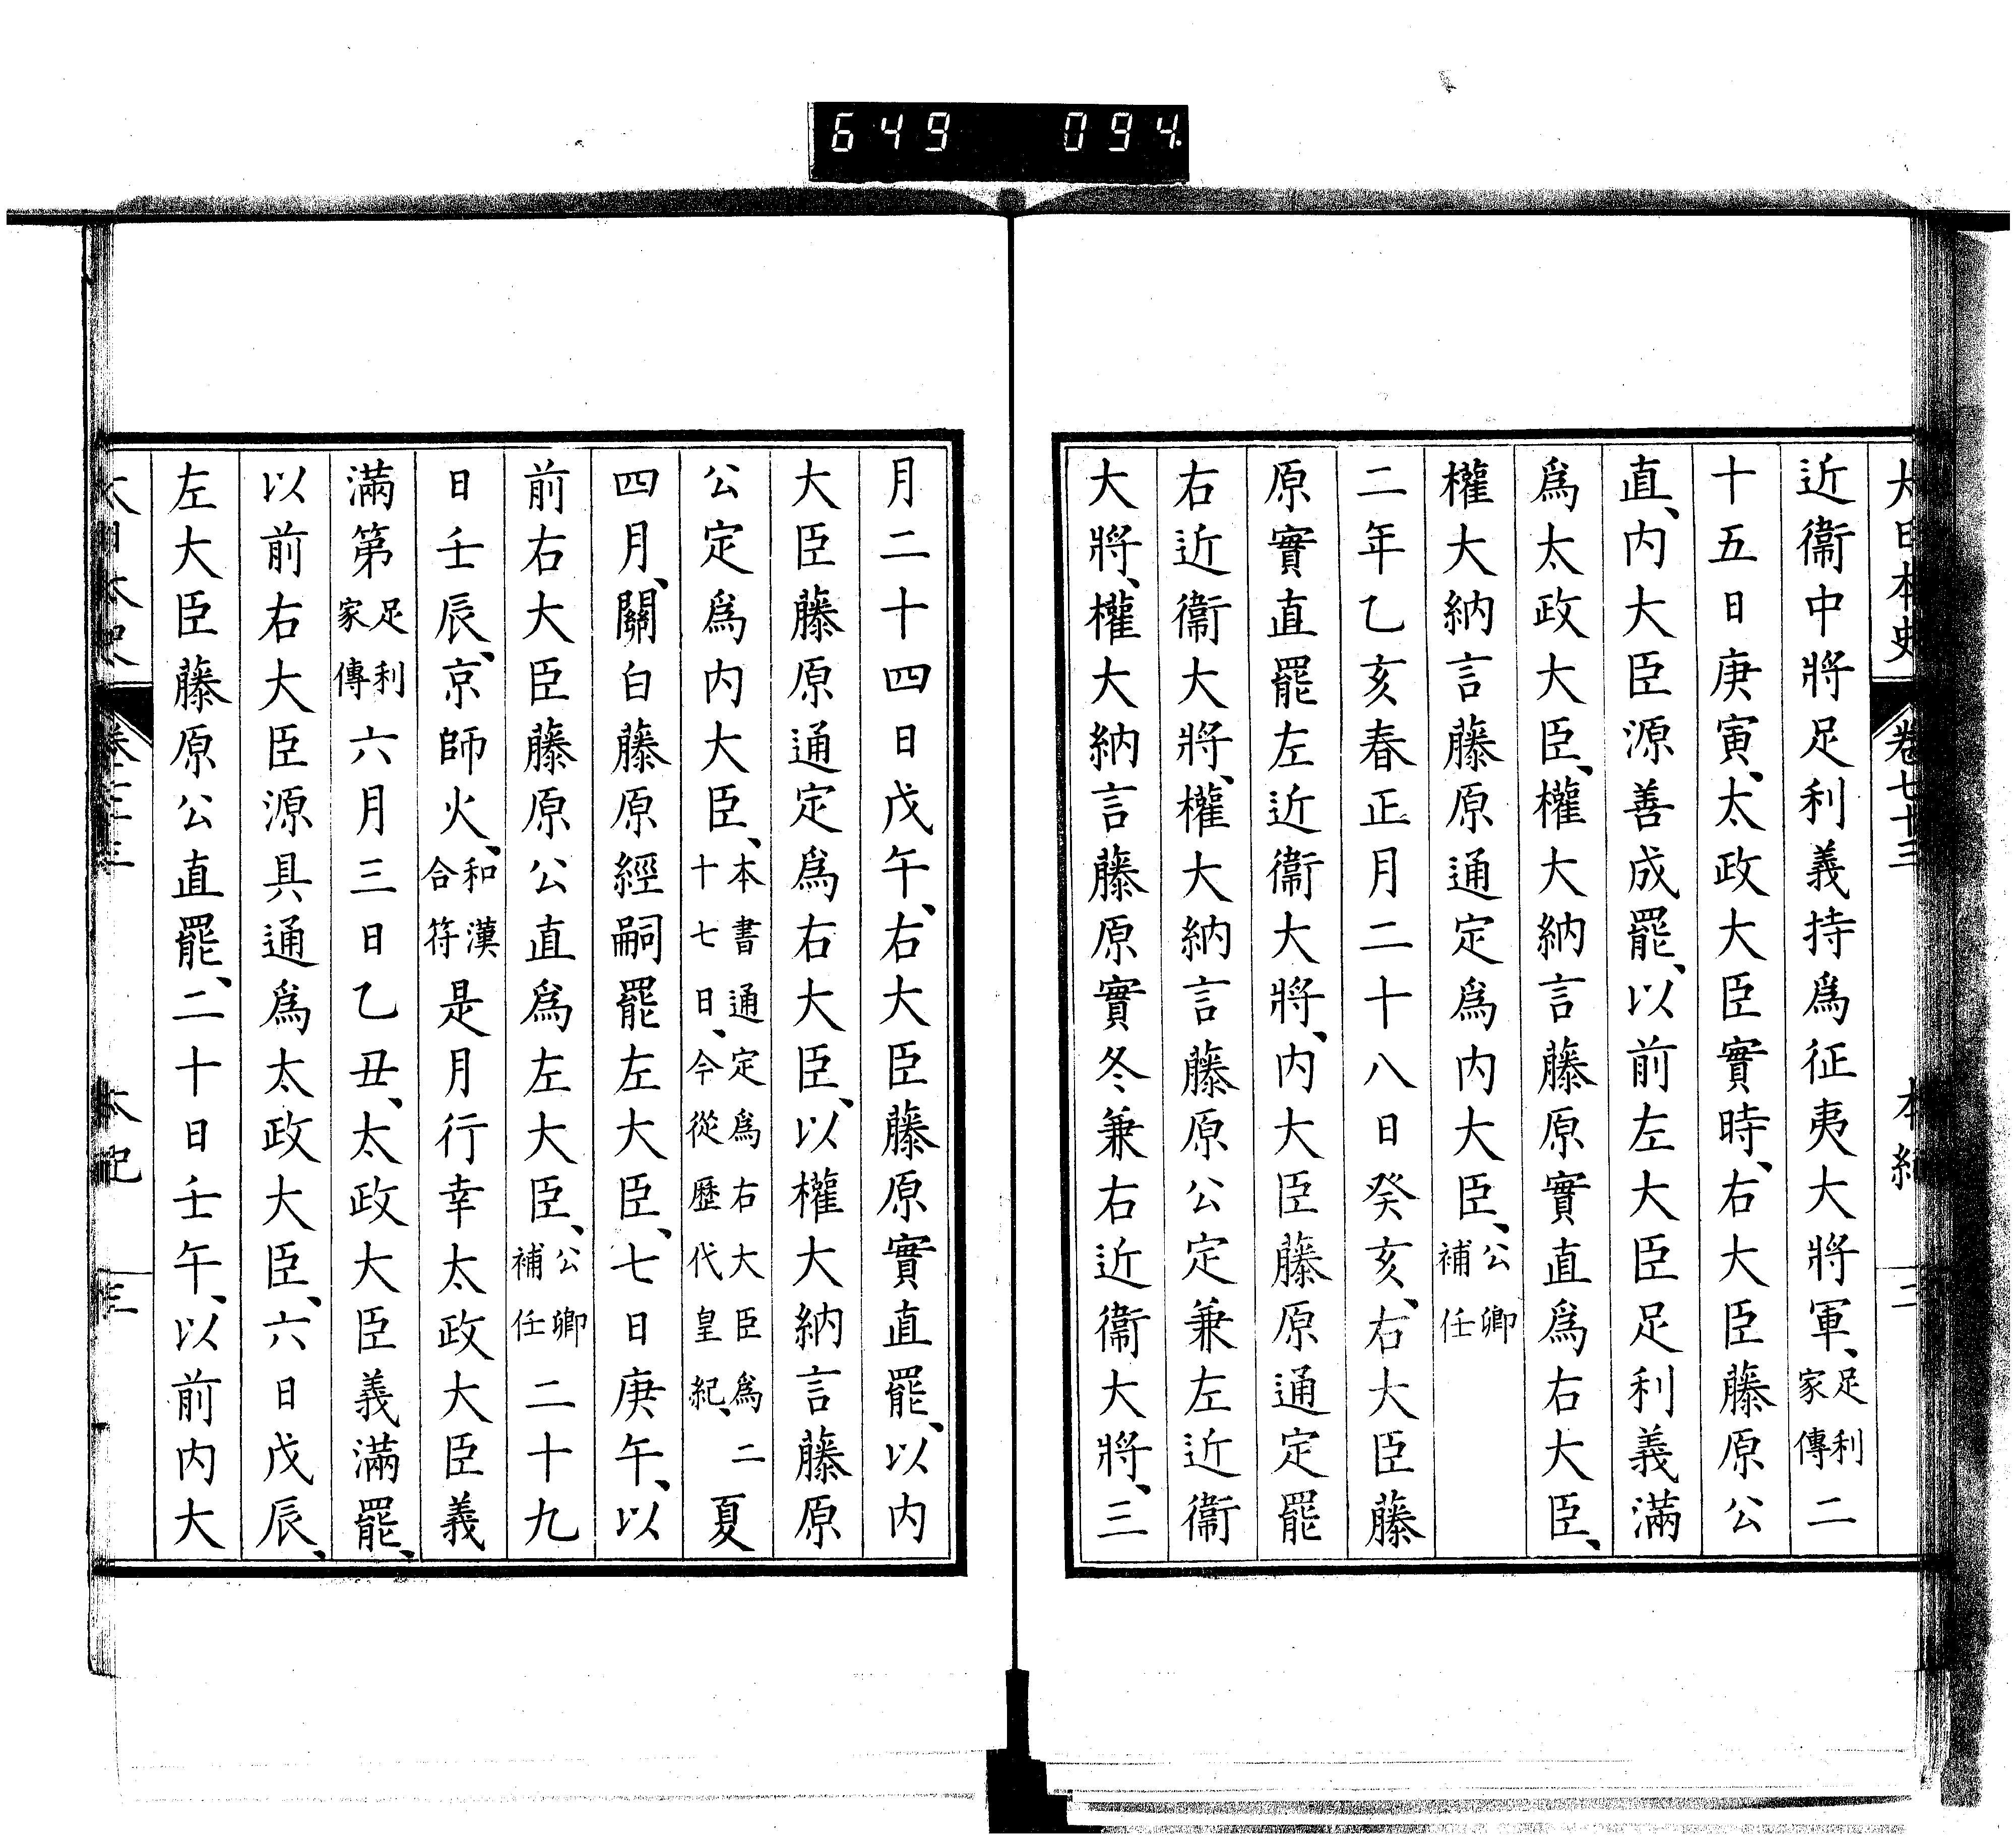 649 094
大日本史 卷七十三 本紀 二
近衞中將足利義持爲征夷大將軍、足利家傳二
十五日庚寅、太政大臣實時、右大臣藤原公
直、内大臣源善成罷、以前左大臣足利義滿
爲太政大臣、權大納言藤原實直爲右大臣、
權大納言藤原通定爲内大臣、公卿補任
二年乙亥春正月二十八日癸亥、右大臣藤
原實直罷左近衞大將、内大臣藤原通定罷
右近衞大將、權大納言藤原公定兼左近衞
大將、權大納言藤原實冬兼右近衞大將、三
月二十四日戊午、右大臣藤原實直罷、以内
大臣藤原通定爲右大臣、以權大納言藤原
公定爲内大臣、本書通定爲右大臣爲二十七日、今從歷代皇紀、夏
四月、關白藤原經嗣罷左大臣、七日庚午、以
前右大臣藤原公直爲左大臣、公卿補任二十九
日壬辰、京師火、和漢合符是月行幸太政大臣義
滿第足利家傳六月三日乙丑、太政大臣義滿罷、
以前右大臣源具通爲太政大臣、六日戊辰、
左大臣藤原公直罷、二十日壬午、以前内大
大日本史 卷七十三 本紀 三